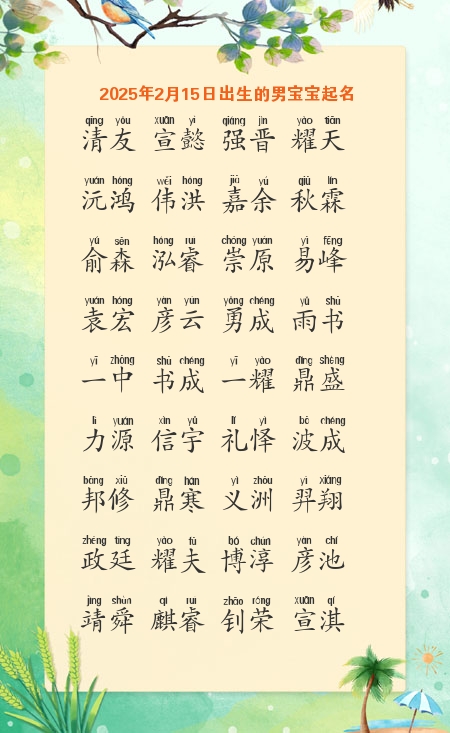 2025年2月15日出生的男宝宝起名
qīng yǒu xuān yì qiáng jìn yào tiān
清友 宣懿 强晋 耀天
yuán hóng wěi hóng jiā yú qiū lín
沅鸿 伟洪 嘉余 秋霖
yú sēn hóng ruì chóng yuán yì fēng
俞森 泓睿 崇原 易峰
yuán hóng yàn yún yǒng chéng yǔ shū
袁宏 彦云 勇成 雨书
yī zhōng shū chéng yī yào dǐng shèng
一中 书成 一耀 鼎盛
lì yuán xìn yǔ lǐ yì bō chéng
力源 信宇 礼怿 波成
bāng xiū dǐng hán yì zhōu yì xiáng
邦修 鼎寒 义洲 羿翔
zhèng tíng yào fū bó chún yàn chí
政廷 耀夫 博淳 彦池
jìng shùn qí ruì zhāo róng xuān qí
靖舜 麒睿 钊荣 宣淇